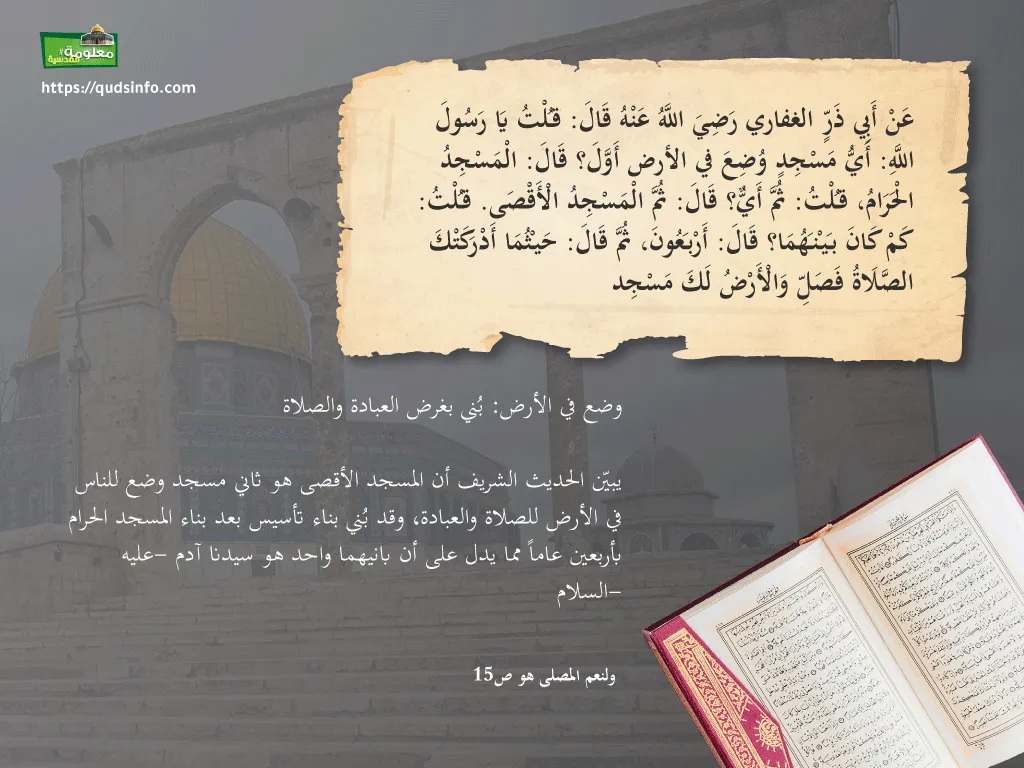 #معلومة
مقدسية
https://qudsinfo.com
عَنْ أَبِي ذَرٍّ الغفاري رَضِيَ اللَّهُ عَنْهُ قَالَ: قُلْتُ يَا رَسُولَ
اللَّهِ: أَيُّ مَسْجِدٍ وُضِعَ في الأرض أَوَّلَ؟ قَالَ: الْمَسْجِدُ
الْحَرَامُ، قُلْتُ: ثُمَّ أَيٌّ؟ قَالَ: ثُمَّ الْمَسْجِدُ الْأَقْصَى. قُلْتُ:
كَمْ كَانَ بَيْنَهُمَا؟ قَالَ: أَرْبَعُونَ، ثُمَّ قَالَ: حَيْثُمَا أَدْرَكَتْكَ
الصَّلَاةُ فَصَلِّ وَالْأَرْضُ لَكَ مَسْجِد
وضع في الأرض: بُني بغرض العبادة والصلاة
يبيّن الحديث الشريف أن المسجد الأقصى هو ثاني مسجد وضع للناس
في الأرض للصلاة والعبادة، وقد بُني بناء تأسيس بعد بناء المسجد الحرام
بأربعين عاماً مما يدل على أن بانيهما واحد هو سيدنا آدم -عليه
-السلام
ولنعم المصلى هو ص15